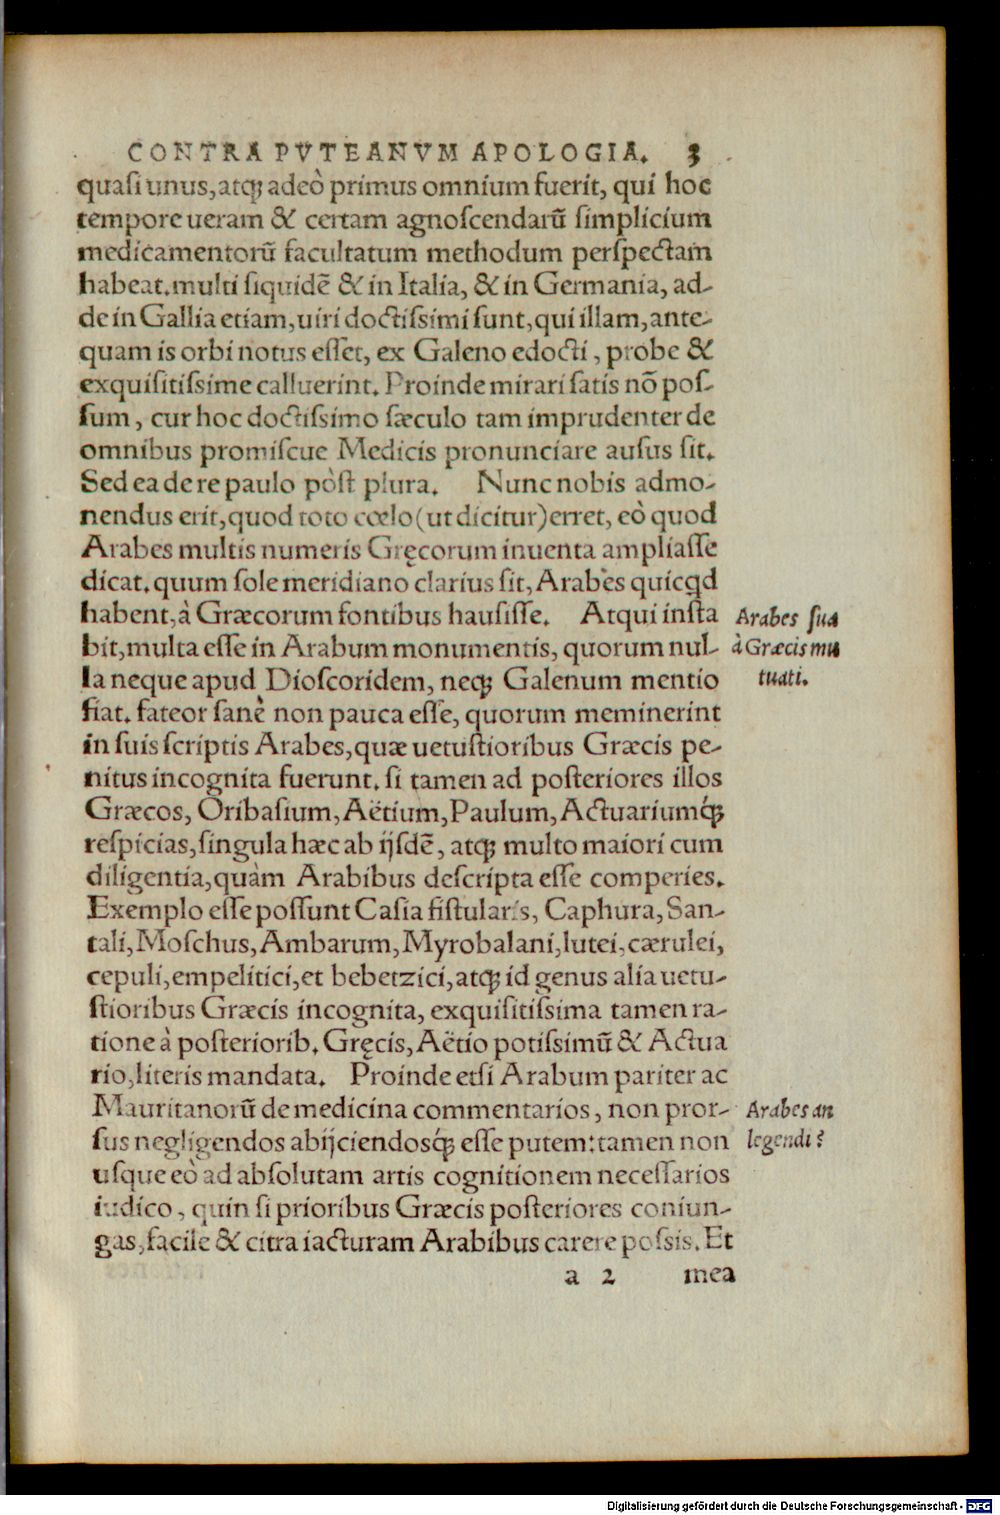 CONTRA PVTEANVM APOLOGIA. 3
quasi unus, atq; adeò primus omnium fuerit, qui hoc
tempore ueram & certam agnoscendarũ simplicium
medicamentorũ facultatum methodum perspectam
habeat. multi siquidẽ & in Italia, & in Germania, ad-
de in Gallia etiam, uiri doctissimi sunt, qui illam, ante-
quam is orbi notus esset, ex Galeno edocti, probe &
exquisitissime calluerint. Proinde mirari satis nõ pos-
sum, cur hoc doctissimo sæculo tam imprudenter de
omnibus promiscue Medicis pronunciare ausus sit.
Sed ea de re paulo pòst plura. Nunc nobis admo-
nendus erit, quod toto cœlo (ut dicitur) erret, eò quod
Arabes multis numeris Gręcorum inuenta ampliasse
dicat. quum sole meridiano clarius sit, Arabes quicqd
habent, à Græcorum fontibus hausisse. Atqui insta
bit, multa esse in Arabum monumentis, quorum nul-
la neque apud Dioscoridem, neq; Galenum mentio
fiat. fateor sanè non pauca esse, quorum meminerint
in suis scriptis Arabes, quæ uetustioribus Græcis pe-
nitus incognita fuerunt. si tamen ad posteriores illos
Græcos, Oribasium, Aëtium, Paulum, Actuariumq́;
respicias, singula hæc ab ijsdẽ, atq; multo maiori cum
diligentia, quàm Arabibus descripta esse comperies.
Exemplo esse possunt Casia fistularis, Caphura, San-
tali, Moschus, Ambarum, Myrobalani, lutei, cærulei,
cepuli, empelitici, et bebetzici, atq; id genus alia uetu-
stioribus Græcis incognita, exquisitissima tamen ra-
tione à posteriorib. Gręcis, Aëtio potissimũ & Actua
rio, literis mandata. Proinde etsi Arabum pariter ac
Mauritanorũ de medicina commentarios, non pror-
sus negligendos abijciendosq́; esse putem: tamen non
usque eò ad absolutam artis cognitionem necessarios
iudico, quin si prioribus Græcis posteriores coniun-
gas, facile & citra iacturam Arabibus carere possis. Et
a 2 mea
Arabes sua
à Græcis mu
tuati.
Arabes an
legendi?
Digitalisierung gefördert durch die Deutsche Forschungsgemeinschaft - DFG